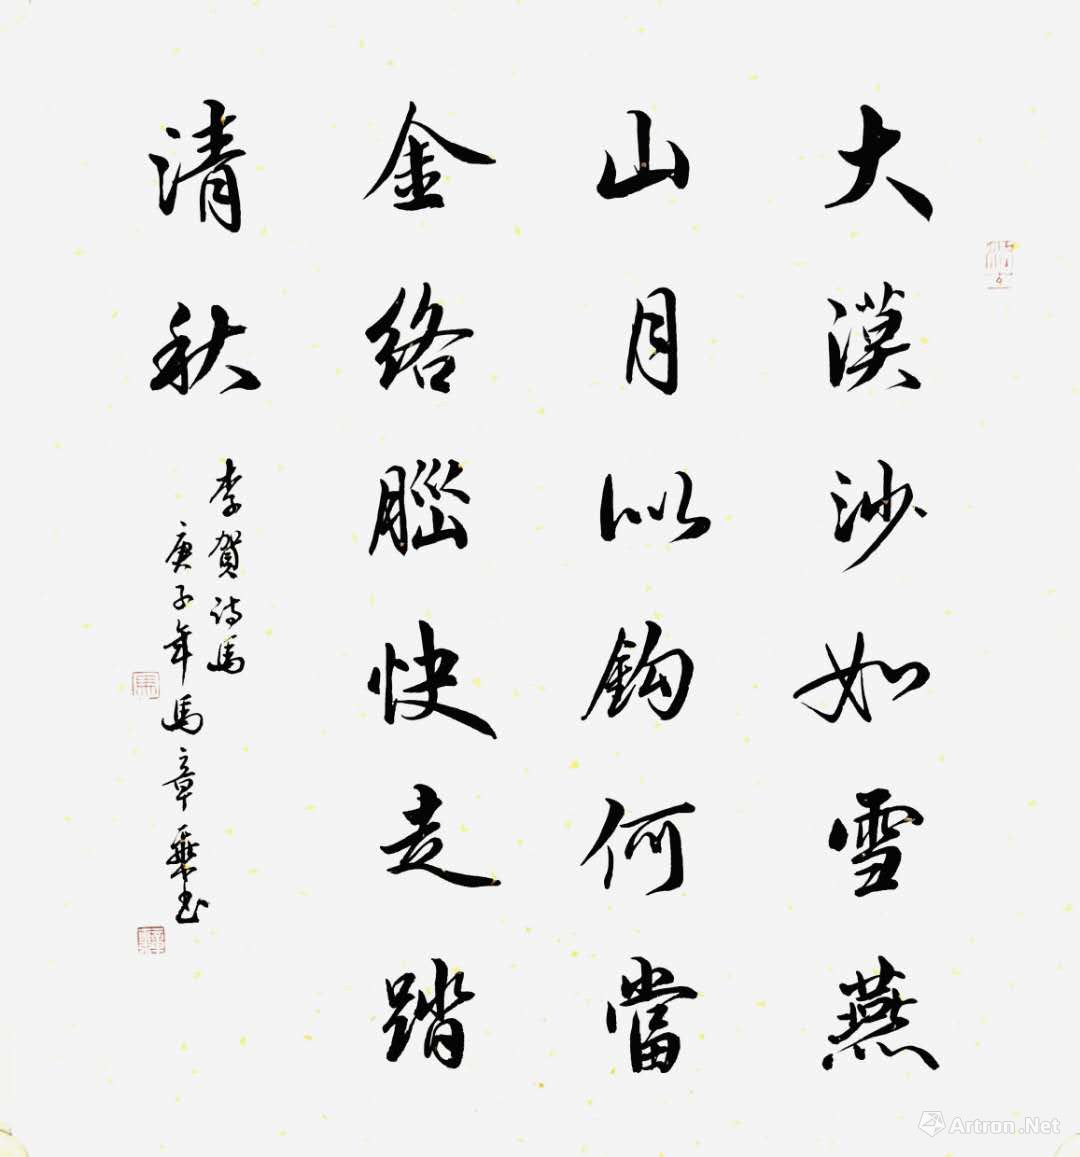 大漠沙如雪燕
山月似鈎何當
金絡腦快走踏
清秋
李賀诗馬
庚子年馬章乘书
Artron.Net